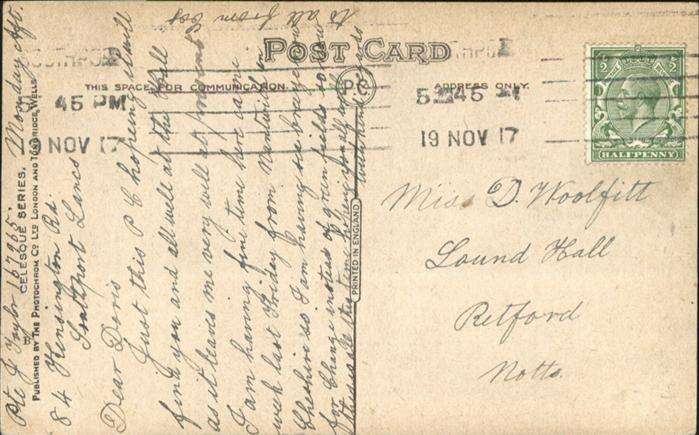 POST CARD
THIS SPACE FOR COMMUNICATION
P.C.
ADDRESS ONLY.
5 45 PM
19 NOV 17
45 PM
19 NOV 17
HALFPENNY
PRINTED IN ENGLAND
CELESQUE SERIES.
PUBLISHED BY THE PHOTOCHROM CO. LTD. LONDON AND TUNBRIDGE WELLS.
Miss. D. Woolfitt
Lound Hall
Retford
Notts.
Pte J Taylor 167265. Monday Aft.
84 Kensington Rd.
Southport Lancs
Dear Doris
Just this P C hopeing it will
find you and all well at the Hall
as it leaves me very well at present
I am having fine time here came
here last Friday from Nantwich
Cheshire so I am having sea breezes
for change instead of green fields
this time
to all from